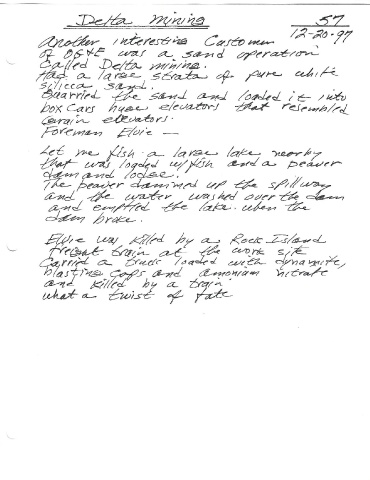 Delta Mining
57
12-20-97
Another interesting Customer
of OG&E was a sand operation
Called Delta mining.
Had a large strata of pure white
silicca sand.
Quarried the sand and loaded it into
box cars huge elevators that resembled
Grain elevators.
Foreman Elvie —
Let me fish a large lake nearby
that was loaded w/fish and a beaver
dam and lodge.
The beaver dammed up the spillway
and the water washed over the dam
and emptied the lake. when the
dam broke.
Elvie was killed by a Rock Island
freight train at the work site
Carried a truck loaded with dynamite,
blasting caps and amonium nitrate
and killed by a train
what a twist of fate